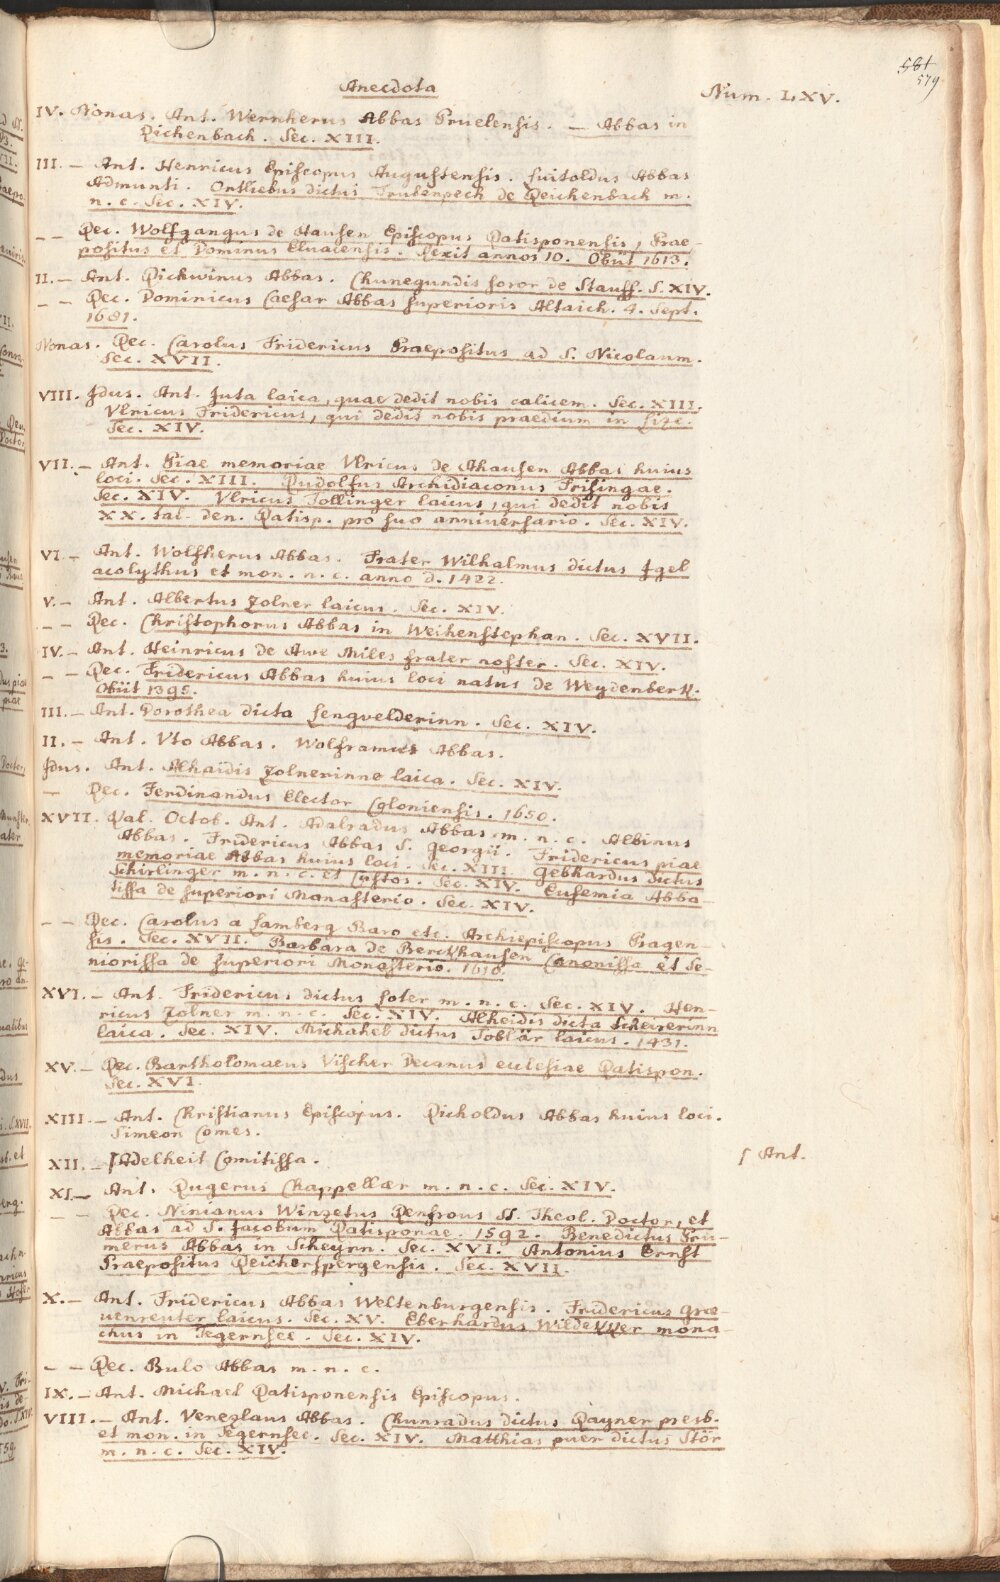 581
579
Anecdota
Num. LXV.
IV. Nonas. Ant. Wernherus Abbas Pruelensis. — Abbas in
Richenbach. Sec. XIII.
III. — Ant. Henricus Episcopus Augustensis. Luitoldus Abbas
Admunti. Ortliebus dictus Trubenpech de Reichenbach m.
n. c. Sec. XIV.
— — Rec. Wolfgangus de Hausen Episcopus Ratisponensis, Prae-
positus et Dominus Elvacensis. Rexit annos 10. Obiit 1613.
II. — Ant. Richwinus Abbas. Chunegundis soror de Stauff. S. XIV.
— — Rec. Dominicus Caesar Abbas superioris Altaich. 4. Sept.
1681.
Nonas. Rec. Carolus Fridericus Praepositus ad S. Nicolaum.
Sec. XVII.
VIII. Idus. Ant. Juta laica, quae dedit nobis calicem. Sec. XIII.
Vlricus Fridericus, qui dedit nobis praedium in
Sec. XIV.
VII. — Ant. Piae memoriae Vlricus de Ahausen Abbas huius
loci. Sec. XIII. Rudolfus Archidiaconus Frisingae.
Sec. XIV. Vlricus Tollinger laicus, qui dedit nobis
XX. tal. den. Ratisp. pro suo anniversario. Sec. XIV.
VI — Ant. Wolfherus Abbas. Frater Wilhalmus dictus Igel
acolythus et mon. n. c. anno d. 1422.
V. — Ant. Albertus Zolner laicus. Sec. XIV.
— — Rec. Christophorus Abbas in Weihenstephan. Sec. XVII.
IV. — Ant. Heinricus de Awe Miles frater noster. Sec. XIV.
— — Rec. Fridericus Abbas huius loci natus de Weydenberk.
Obiit 1395.
III. — Ant. Dorothea dicta Lengvelderinn. Sec. XIV.
II. — Ant. Vto Abbas. Wolframus Abbas.
Idus. Ant. Alhaidis Zolnerinne laica. Sec. XIV.
— Rec. Ferdinandus Elector Coloniensis. 1650.
XVII. Kal. Octob. Ant. Adalradus Abbas m. n. c. Albinus
Abbas. Fridericus Abbas S. Georgii. Fridericus piae
memoriae Abbas huius loci. Sec. XIII. Gebhardus dictus
Schirlinger m. n. c. et Custos. Sec. XIV. Eufemia Abba-
tissa de superiori Monasterio. Sec. XIV.
— — Rec. Carolus a Lamberg Baro etc. Archiepiscopus Pragen-
sis. Sec. XVII. Barbara de Berckhausen Canonissa et Se-
niorissa de superiori Monasterio. 1610.
XVI. — Ant. Fridericus dictus Soter m. n. c. Sec. XIV. Hen-
ricus Zolner m. n. c. Sec. XIV. Alheidis dicta Scheirerinn
laica. Sec. XIV. Michahel dictus Toblär laicus. 1431.
XV. — Rec. Bartholomaeus Vischer Decanus ecclesiae Ratispon.
Sec. XVI.
XIII. — Ant. Christianus Episcopus. Richoldus Abbas huius loci.
Simeon Comes.
XII. — ſAdelheit Comitissa.
ſ Ant.
XI. — Ant. Rugerus Chappellær m. n. c. Sec. XIV.
— — Rec. Ninianus Winzetus Renfrous SS. Theol. Doctor, et
Abbas ad S. Jacobum Ratisponae. 1592. Benedictus Pru-
merus Abbas in Scheyrn. Sec. XVI. Antonius Ernst
Praepositus Reicherspergensis. Sec. XVII.
X. — Ant. Fridericus Abbas Weltenburgensis. Fridericus Grae-
uenreuter laicus. Sec. XV. Eberhardus Wildekker mona-
chus in Tegernsee. Sec. XIV.
— — Rec. Bulo Abbas m. n. c.
IX. — Ant. Michael Ratisponensis Episcopus.
VIII. — Ant. Venezlaus Abbas. Chunradus dictus Rayner presb.
et mon. in Tegernsee. Sec. XIV. Matthias puer dictus Stör
m. n. c. Sec. XIV.